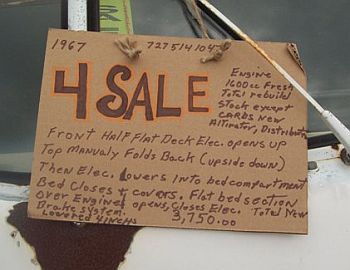 1967 727514104
4 SALE
Engine
1600cc Fresh
Total rebuild
Stock except
CARBS New
Altinator, Distributor
Front Half Flat Deck Elec. opens up
Top Manualy Folds Back (upside down)
Then Elec. Lowers into bed compartment
Bed Closes & covers. Flat bed section
over Engine opens, Closes Elec. Total New
Brake system. 3,750.00
Lowered 4 inchs